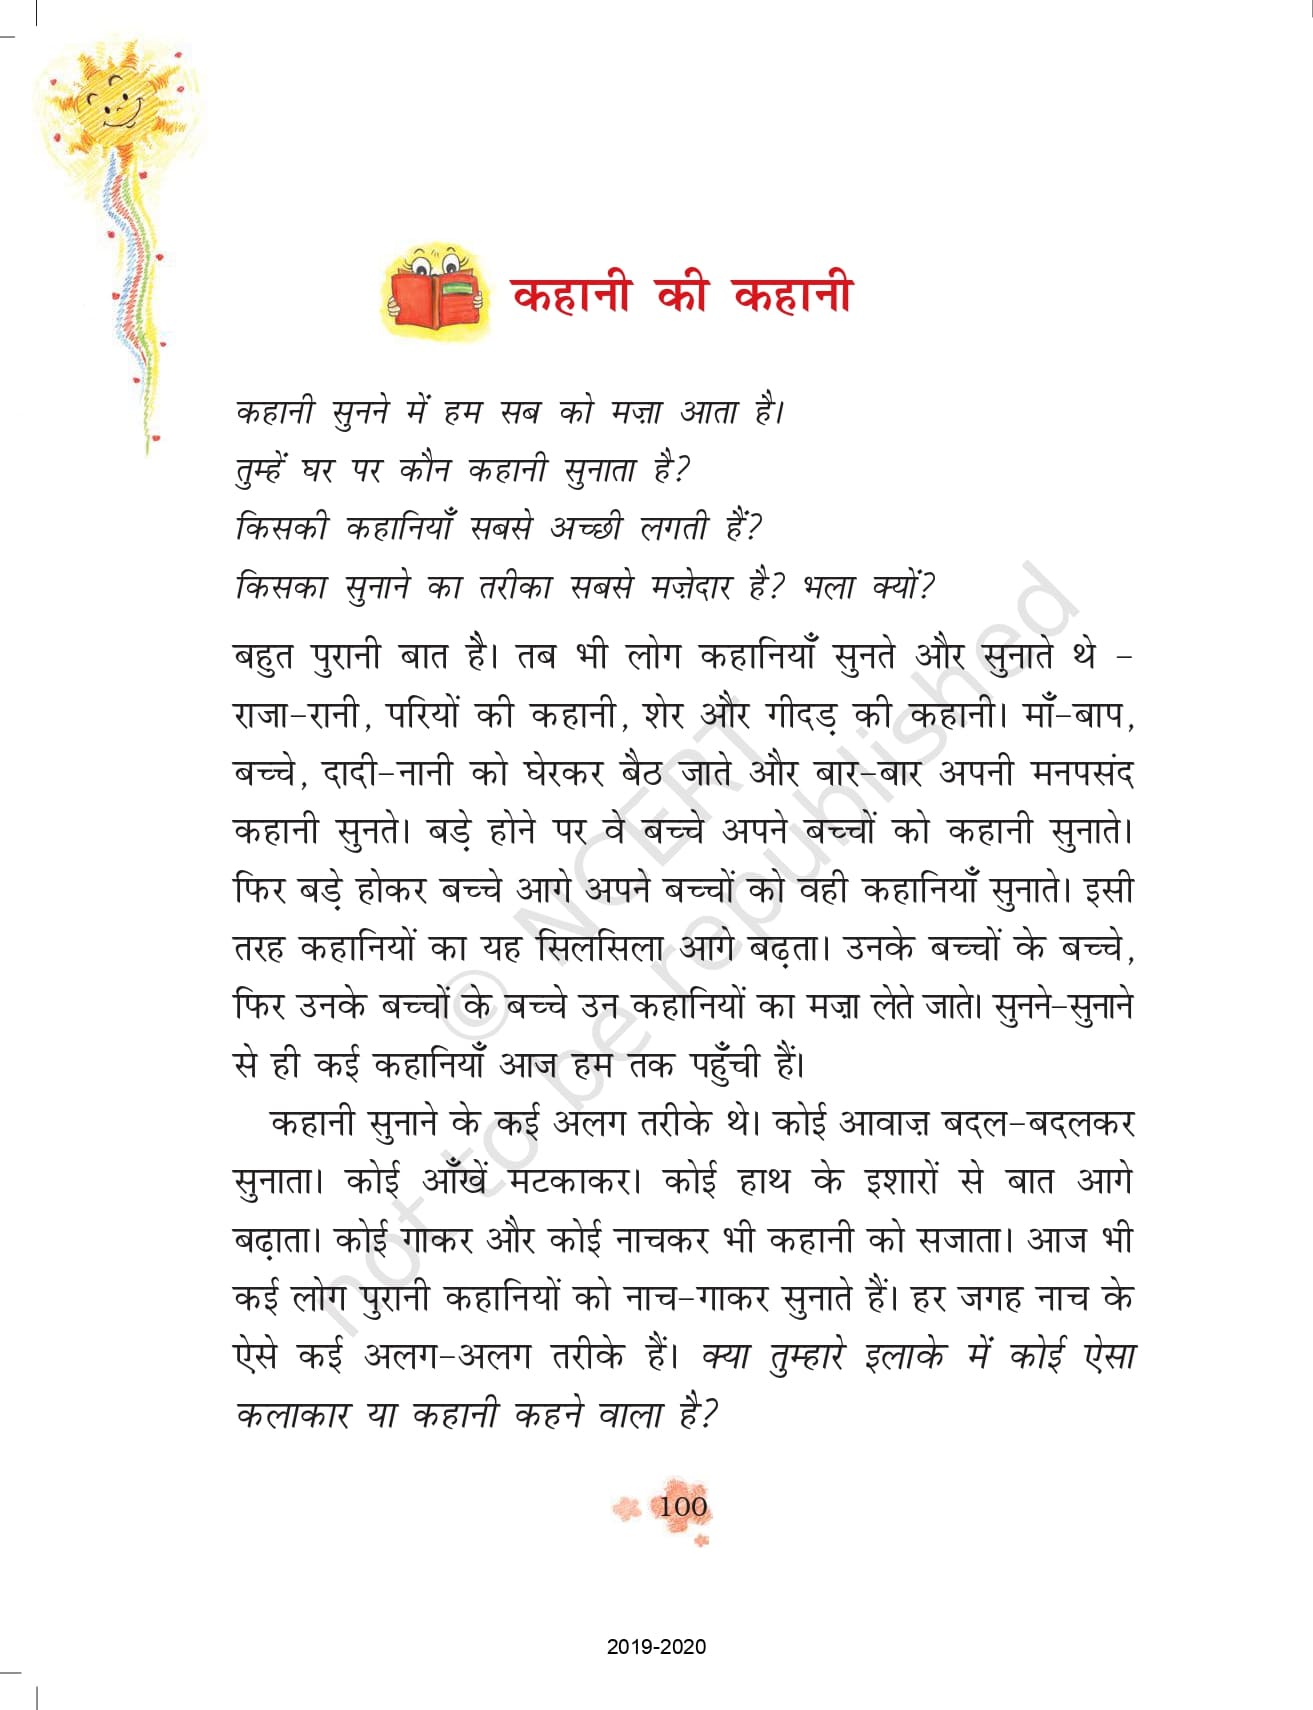 कहानी की कहानी
कहानी सुनने में हम सब को मज़ा आता है।
तुम्हें घर पर कौन कहानी सुनाता है?
किसकी कहानियाँ सबसे अच्छी लगती हैं?
किसका सुनाने का तरीका सबसे मज़ेदार है? भला क्यों?
बहुत पुरानी बात है। तब भी लोग कहानियाँ सुनते और सुनाते थे –
राजा-रानी, परियों की कहानी, शेर और गीदड़ की कहानी। माँ-बाप,
बच्चे, दादी-नानी को घेरकर बैठ जाते और बार-बार अपनी मनपसंद
कहानी सुनते। बड़े होने पर वे बच्चे अपने बच्चों को कहानी सुनाते।
फिर बड़े होकर बच्चे आगे अपने बच्चों को वही कहानियाँ सुनाते। इसी
तरह कहानियों का यह सिलसिला आगे बढ़ता। उनके बच्चों के बच्चे,
फिर उनके बच्चों के बच्चे उन कहानियों का मज़ा लेते जाते। सुनने-सुनाने
से ही कई कहानियाँ आज हम तक पहुँची हैं।
कहानी सुनाने के कई अलग तरीके थे। कोई आवाज़ बदल-बदलकर
सुनाता। कोई आँखें मटकाकर। कोई हाथ के इशारों से बात आगे
बढ़ाता। कोई गाकर और कोई नाचकर भी कहानी को सजाता। आज भी
कई लोग पुरानी कहानियों को नाच-गाकर सुनाते हैं। हर जगह नाच के
ऐसे कई अलग-अलग तरीके हैं। क्या तुम्हारे इलाके में कोई ऐसा
कलाकार या कहानी कहने वाला है?
100
2019-2020
© NCERT
not to be republished